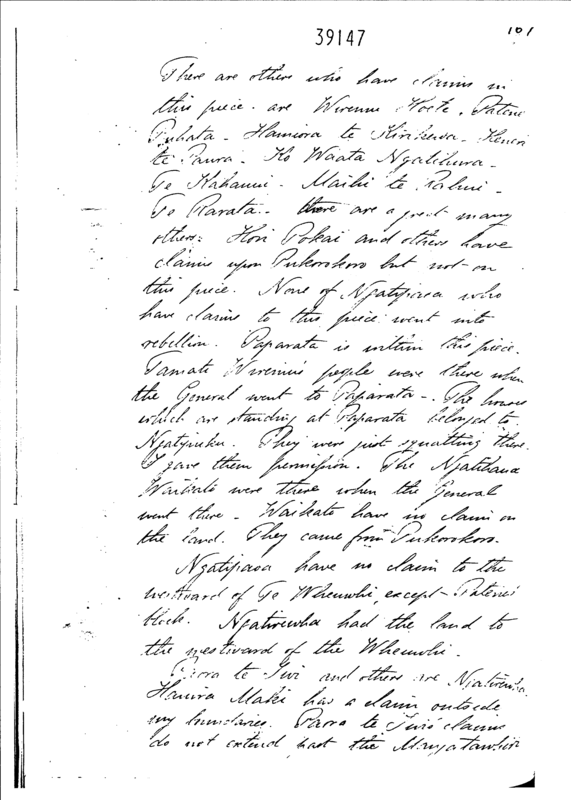 39147
101
There are others who have claims in
this piece. are Wiremu Hoete. Patene
Puhata - Hamiora te Kirikewa. Henere
te Paura - Ko Waata Ngatihura -
Te Kahanui - Maihi te
Te Rarata - there are a great many
others: Hori Pokai and others have
claims upon Pukorokoro but not on
this piece. None of Ngatipaoa who
have claims to this piece went into
rebellion. Paparata is within this piece.
Tamate Wiremu's people were there when
the General went to Paparata - The houses
which are standing at Paparata belonged to
They were just squatting there.
I gave them permission. The Ngatihaua
Waikato were there when the General
went there - Waikato have no claim on
the land. They came from Pukorokoro.
Ngatipaoa have no claim to the
westward of Te Wheuwhi except Patene's
block. had the land to
the westward of the Wheuwhi.
te Iwi and others are
Maki has a claim outside
my boundaries. Para te Iwi's claims
do not extend past the